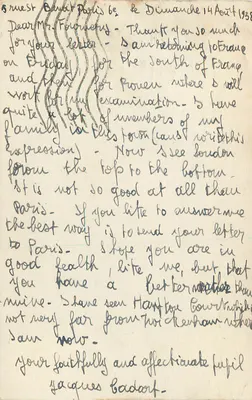 ernest Paris 6e le Dimanche 14 Août
Dear Mr. Thank you so much
for your letter I am returning to France
on Friday for the South of France
and then for Rouen where I will
work for my examination. I have
quite a lot of members of my
family in this town (aus
expression) - Now I see London
from the top to the bottom.
It is not so good at all than
Paris - If you like to answer me
the best way is to send your letter
to Paris - I hope you are in
good fealth, like me, but, that
you have a better than
mine. I have seen Court
not very far from where
I am now -
your faithfully and affectionate pupil
Jacques